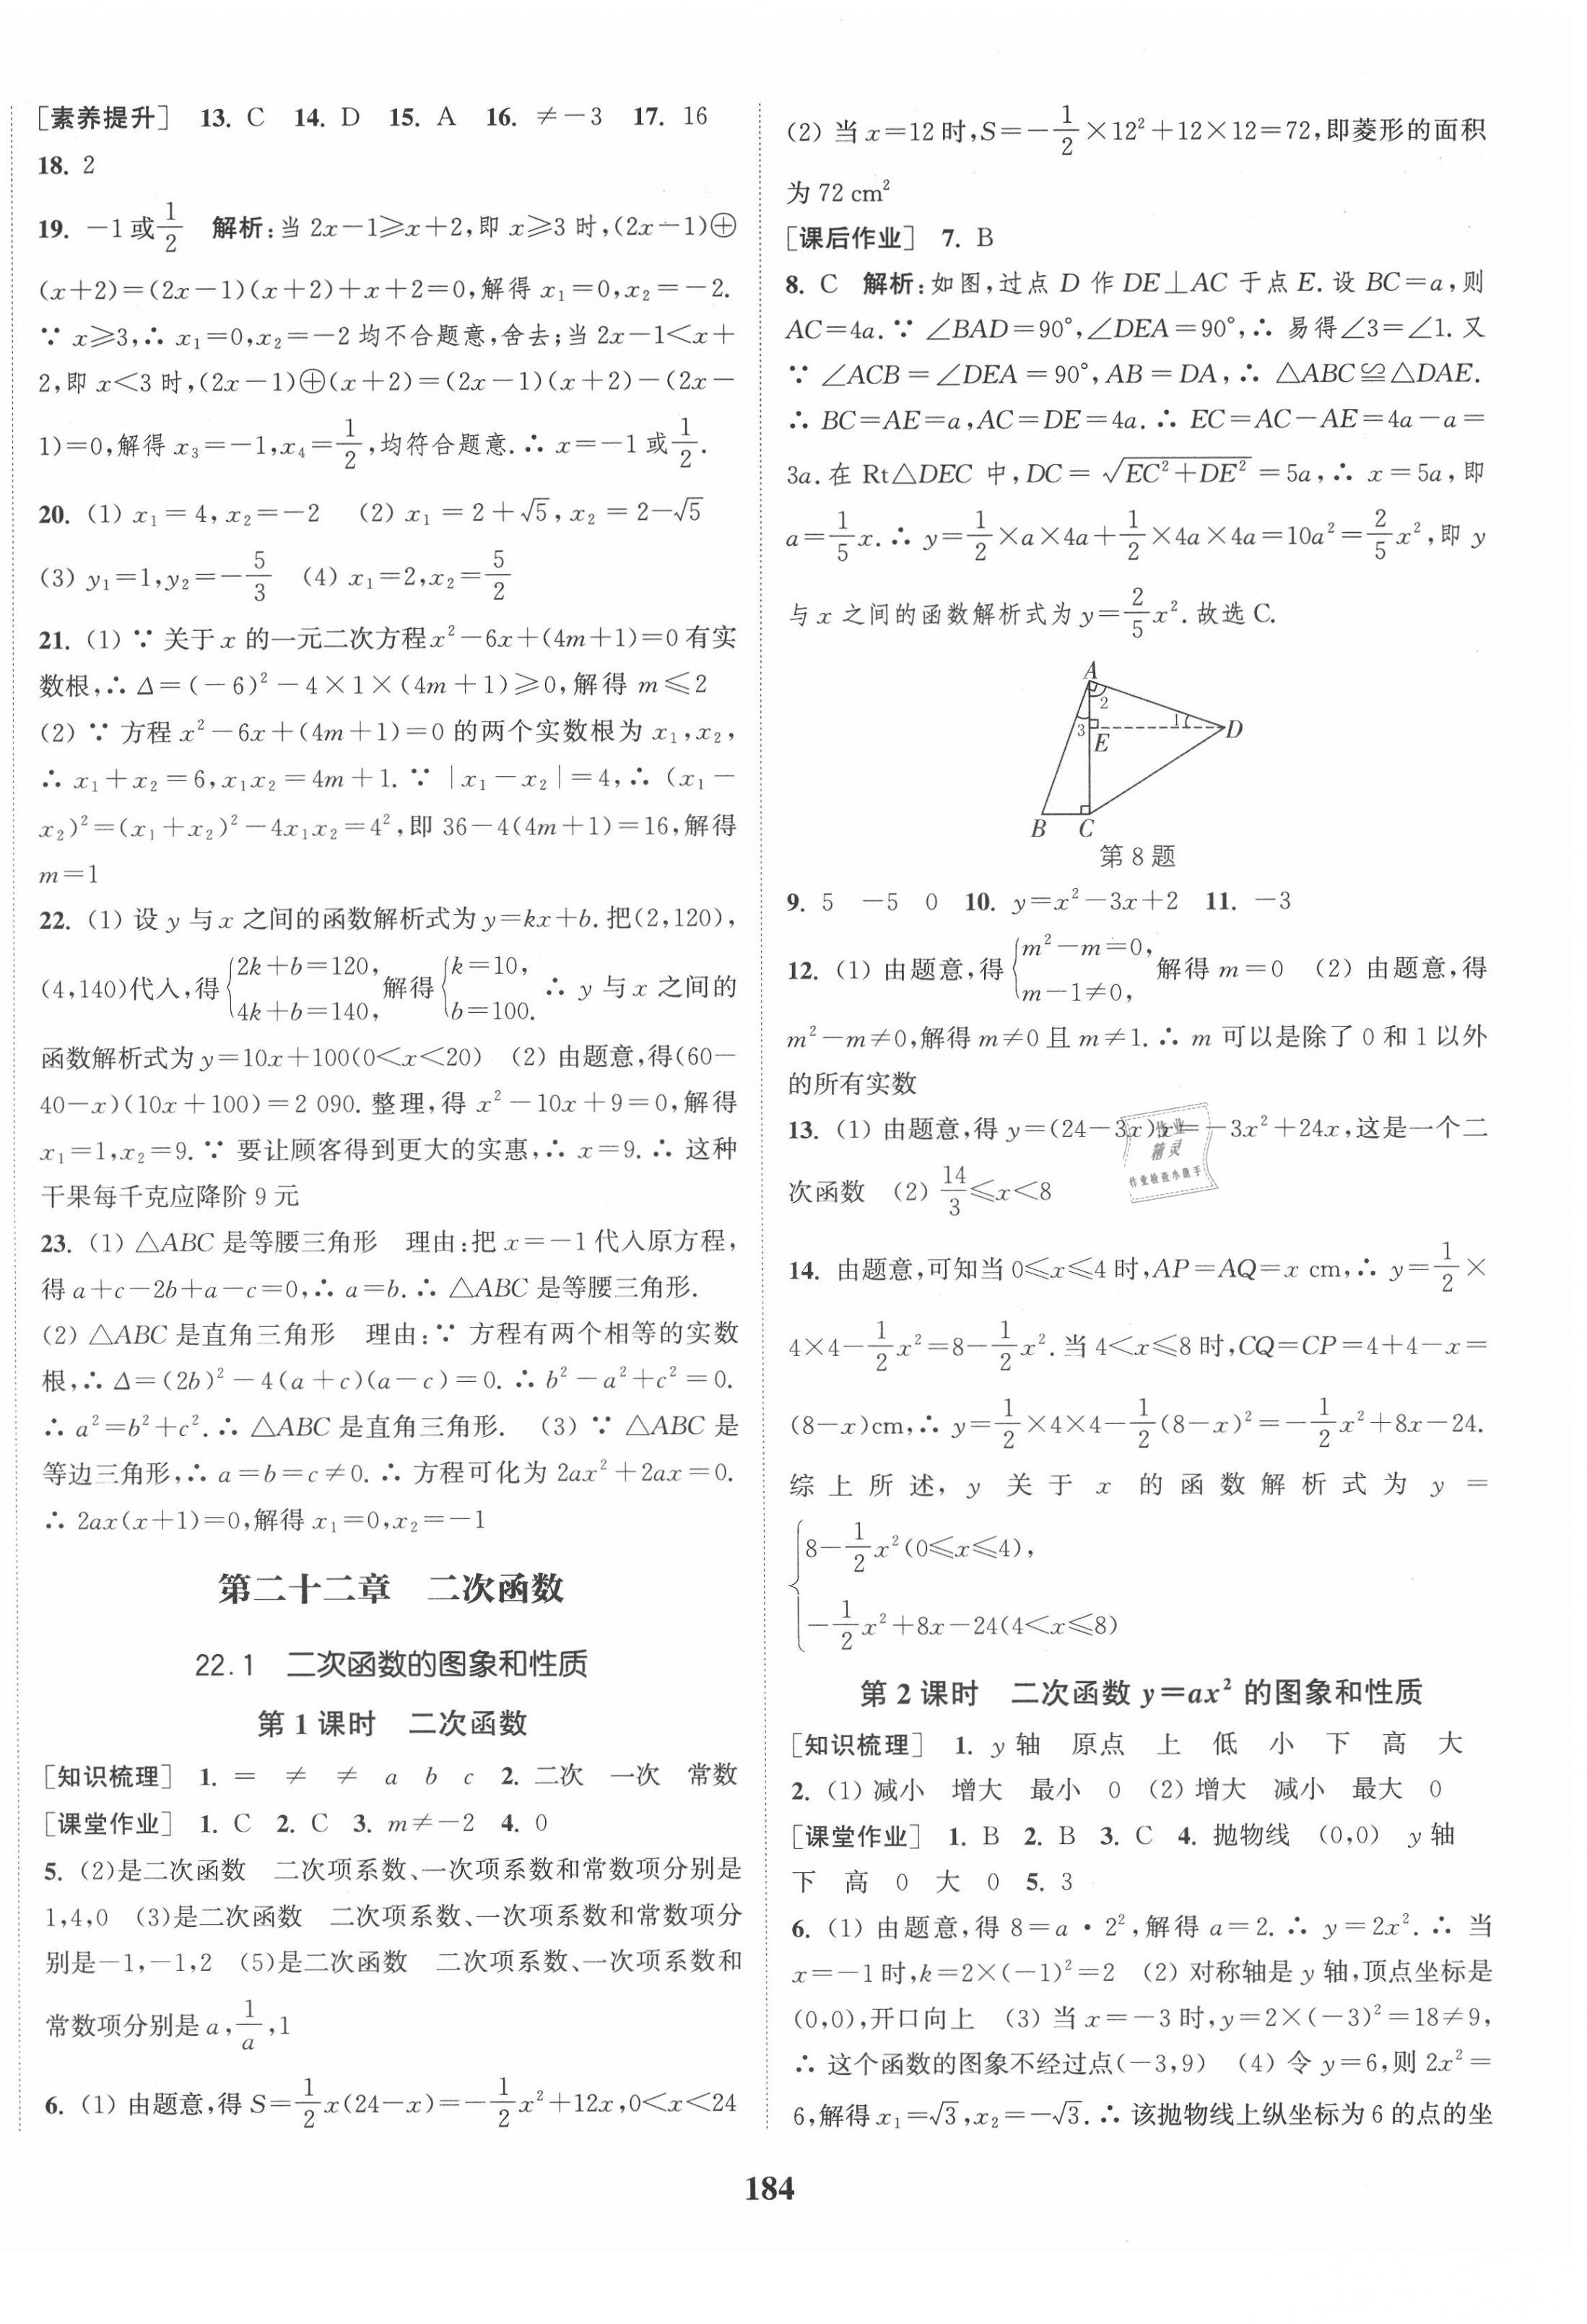 [素养提升] 13. C 14. D 15. A 16. ≠-3 17. 16
18. 2
19. -1或1/2 解析:当 2x-1≥x+2,即 x≥3 时,(2x-1)⊕
(x+2)=(2x-1)(x+2)+x+2=0,解得 x₁=0,x₂=-2.
∵ x≥3,∴ x₁=0,x₂=-2 均不合题意,舍去;当 2x-1<x+
2,即 x<3 时,(2x-1)⊕(x+2)=(2x-1)(x+2)-(2x-
1)=0,解得 x₃=-1,x₄=1/2,均符合题意.∴ x=-1 或1/2.
20. (1) x₁=4,x₂=-2 (2) x₁=2+√5,x₂=2-√5
(3) y₁=1,y₂=-5/3 (4) x₁=2,x₂=5/2
21. (1) ∵ 关于 x 的一元二次方程x²-6x+(4m+1)=0 有实
数根,∴ Δ=(-6)²-4×1×(4m+1)≥0,解得 m≤2
(2) ∵ 方程 x²-6x+(4m+1)=0 的两个实数根为 x₁,x₂,
∴ x₁+x₂=6,x₁x₂=4m+1.∵ |x₁-x₂|=4,∴ (x₁-
x₂)²=(x₁+x₂)²-4x₁x₂=4²,即 36-4(4m+1)=16,解得
m=1
22. (1) 设 y 与 x 之间的函数解析式为 y=kx+b.把(2,120),
(4,140)代入,得{2k+b=120, 4k+b=140, 解得{k=10, b=100. ∴ y 与 x 之间的
函数解析式为 y=10x+100(0<x<20) (2) 由题意,得(60-
40-x)(10x+100)=2 090.整理,得 x²-10x+9=0,解得
x₁=1,x₂=9.∵ 要让顾客得到更大的实惠,∴ x=9.∴ 这种
干果每千克应降阶 9 元
23. (1) △ABC 是等腰三角形 理由:把 x=-1 代入原方程,
得 a+c-2b+a-c=0,∴ a=b.∴ △ABC 是等腰三角形.
(2) △ABC 是直角三角形 理由:∵ 方程有两个相等的实数
根,∴ Δ=(2b)²-4(a+c)(a-c)=0.∴ b²-a²+c²=0.
∴ a²=b²+c².∴ △ABC 是直角三角形. (3) ∵ △ABC 是
等边三角形,∴ a=b=c≠0.∴ 方程可化为 2ax²+2ax=0.
∴ 2ax(x+1)=0,解得 x₁=0,x₂=-1
第二十二章 二次函数
22.1 二次函数的图象和性质
第 1 课时 二次函数
[知识梳理] 1. = ≠ ≠ a b c 2. 二次 一次 常数
[课堂作业] 1. C 2. C 3. m≠-2 4. 0
5. (2)是二次函数 二次项系数、一次项系数和常数项分别是
1,4,0 (3)是二次函数 二次项系数、一次项系数和常数项分
别是-1,-1,2 (5)是二次函数 二次项系数、一次项系数和
常数项分别是 a,1/a,1
6. (1) 由题意,得 S=1/2x(24-x)=-1/2x²+12x,0<x<24
(2) 当 x=12 时,S=-1/2×12²+12×12=72,即菱形的面积
为 72 cm²
[课后作业] 7. B
8. C 解析:如图,过点 D 作 DE⊥AC 于点 E.设 BC=a,则
AC=4a.∵ ∠BAD=90°,∠DEA=90°,∴ 易得∠3=∠1.又
∵ ∠ACB=∠DEA=90°,AB=DA,∴ △ABC≌△DAE.
∴ BC=AE=a,AC=DE=4a.∴ EC=AC-AE=4a-a=
3a.在 Rt△DEC 中,DC=√(EC²+DE²)=5a,∴ x=5a,即
a=1/5x.∴ y=1/2×a×4a+1/2×4a×4a=10a²=2/5x²,即 y
与 x 之间的函数解析式为 y=2/5x².故选 C.
A
2
3
E
1
D
B C
第 8 题
9. 5 -5 0 10. y=x²-3x+2 11. -3
12. (1) 由题意,得{m²-m=0, m-1≠0, 解得 m=0 (2) 由题意,得
m²-m≠0,解得 m≠0 且 m≠1.∴ m 可以是除了 0 和 1 以外
的所有实数
13. (1) 由题意,得 y=(24-3x)x=-3x²+24x,这是一个二
次函数 (2) 14/3≤x<8
作业
精灵
作业检查小助手
14. 由题意,可知当 0≤x≤4 时,AP=AQ=x cm,∴ y=1/2×
4×4-1/2x²=8-1/2x².当 4<x≤8 时,CQ=CP=4+4-x=
(8-x)cm,∴ y=1/2×4×4-1/2(8-x)²=-1/2x²+8x-24.
综上所述,y 关于 x 的函数解析式为 y=
{8-1/2x²(0≤x≤4),
-1/2x²+8x-24(4<x≤8)
第 2 课时 二次函数 y=ax² 的图象和性质
[知识梳理] 1. y 轴 原点 上 低 小 下 高 大
2. (1) 减小 增大 最小 0 (2) 增大 减小 最大 0
[课堂作业] 1. B 2. B 3. C 4. 抛物线 (0,0) y 轴
下 高 0 大 0 5. 3
6. (1) 由题意,得 8=a·2²,解得 a=2.∴ y=2x².∴ 当
x=-1 时,k=2×(-1)²=2 (2) 对称轴是 y 轴,顶点坐标是
(0,0),开口向上 (3) 当 x=-3 时,y=2×(-3)²=18≠9,
∴ 这个函数的图象不经过点(-3,9) (4) 令 y=6,则 2x²=
6,解得 x₁=√3,x₂=-√3.∴ 该抛物线上纵坐标为 6 的点的坐
184